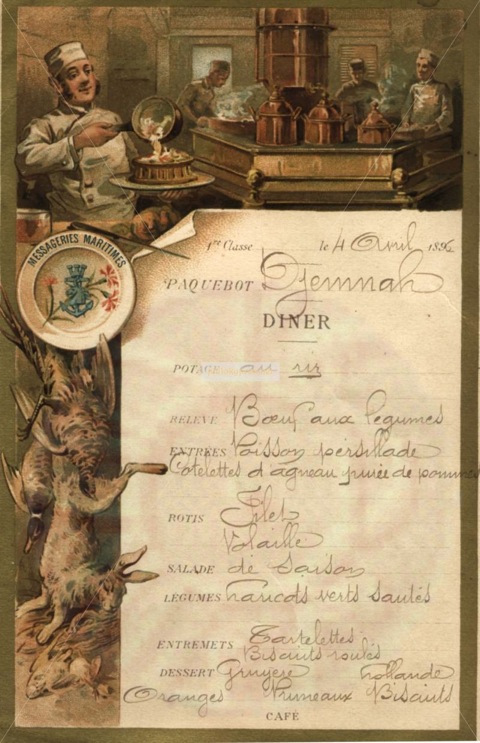 MESSAGERIES MARITIMES
1re Classe le 4 Avril 1896
PAQUEBOT Djemnah
DINER
POTAGE au riz
RELEVÉ Bœuf aux légumes
ENTRÉES Poisson persillade
Cotelettes d'agneau purée de pommes
ROTIS Filet
Volaille
SALADE de Saison
LÉGUMES Haricots verts sautés
ENTREMETS Tartelettes
Biscuits roulés
DESSERT Gruyère hollande
Oranges Pruneaux Biscuits
CAFÉ